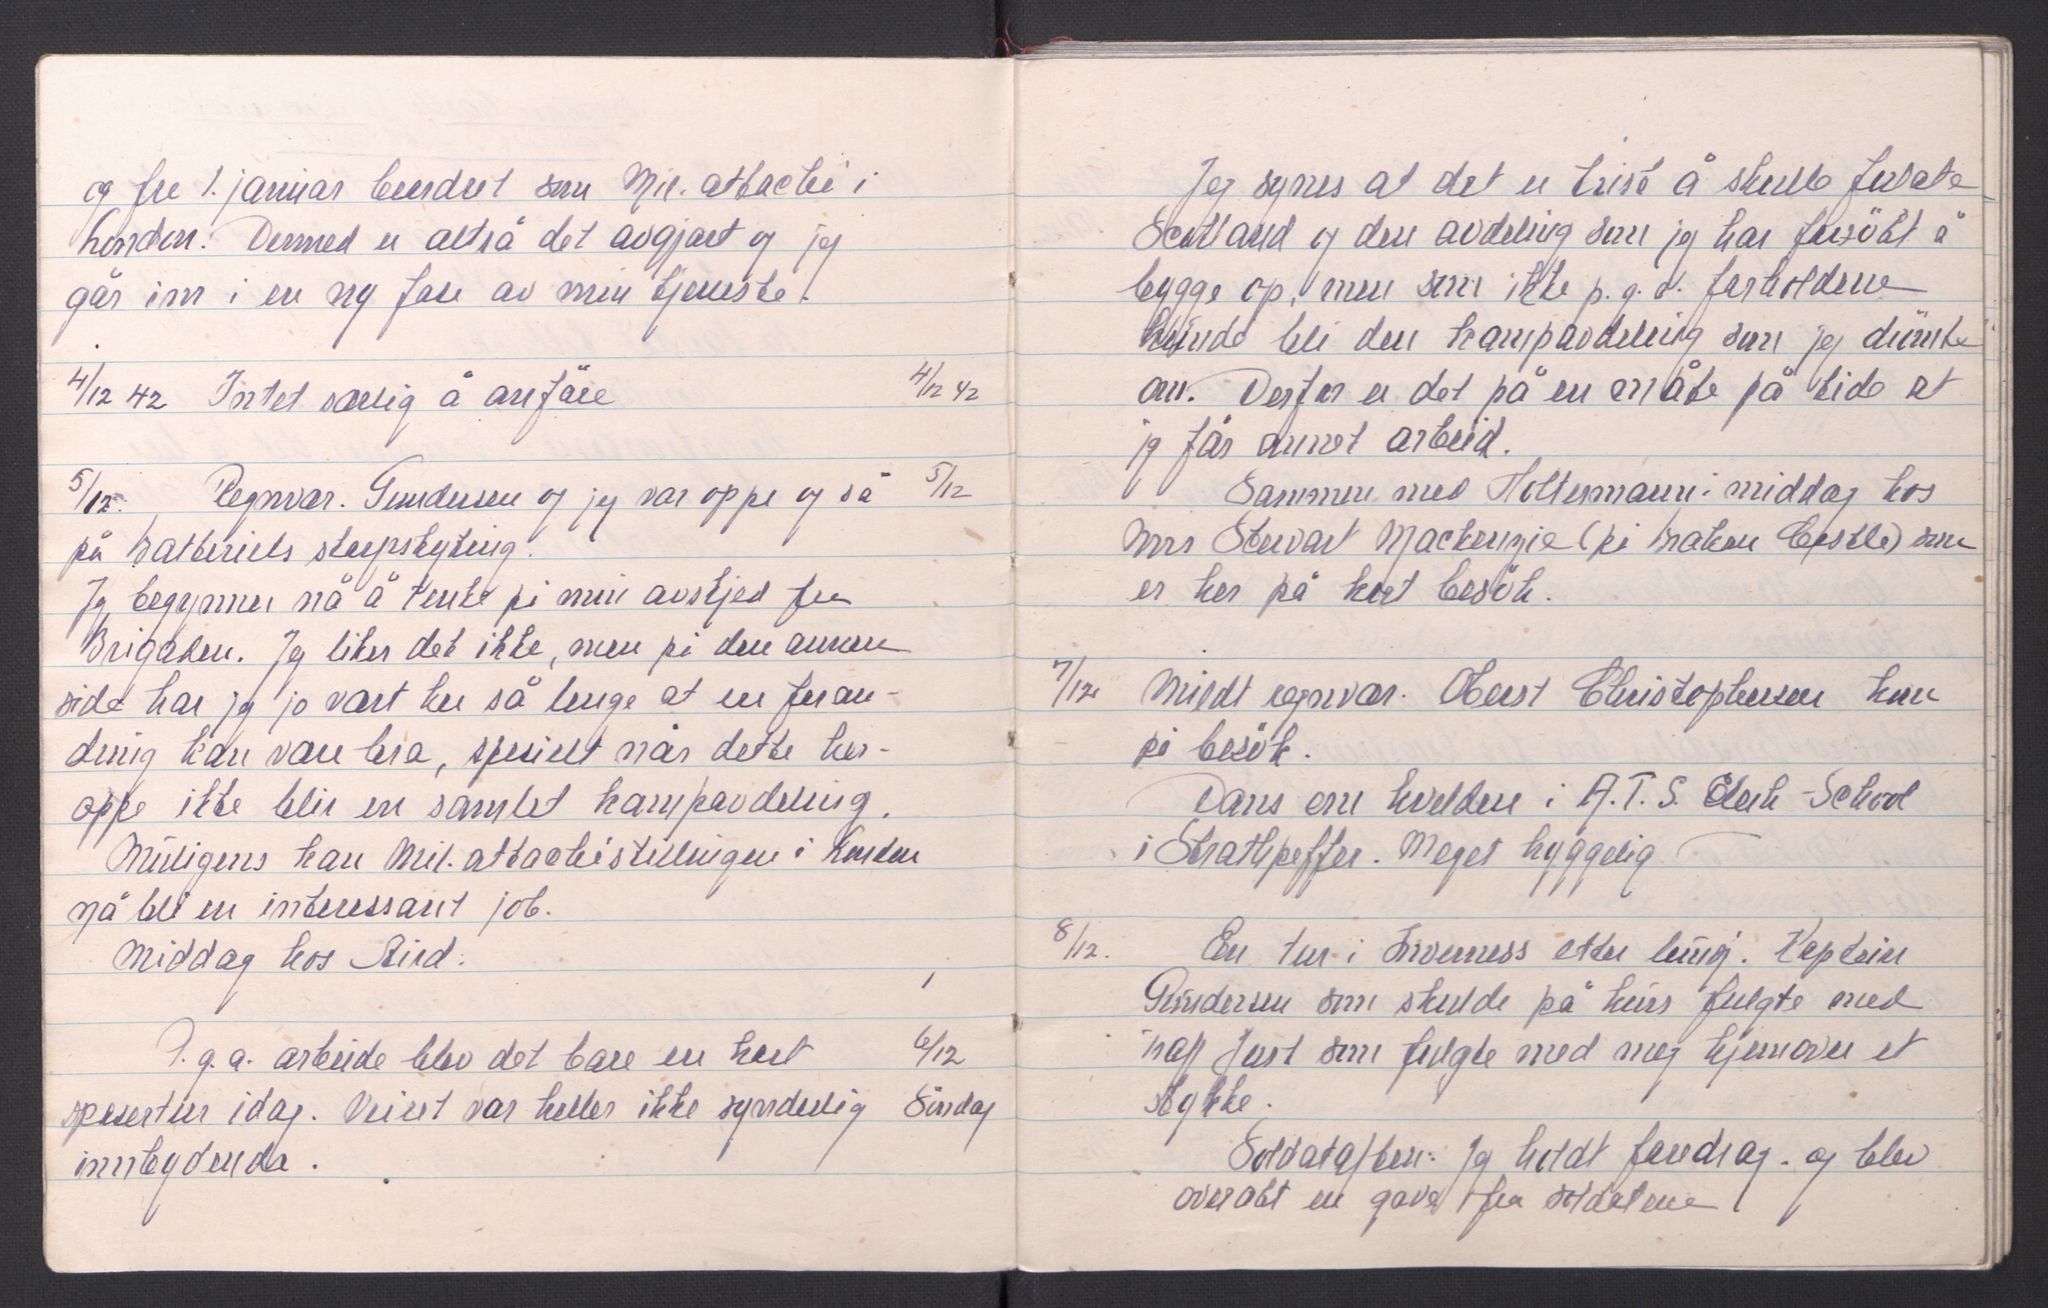 og fra 1. januar beordret som Mil. attaché i
London. Dermed er altså det avgjort og jeg
går inn i en ny fase av min tjeneste.
4/12 42 Intet særlig å anføre 4/12 42
5/12. Regnvær. Gundersen og jeg var oppe og så 5/12
på batteriets skarpskyting.
Jeg begynner nå å tenke på min avskjed fra
Brigaden. Jeg liker det ikke, men på den annen
side har jeg jo vært her så lenge at en foran-
dring kan være bra, spesielt når dette her-
oppe ikke blir en samlet kampavdeling.
Muligens kan Mil. attachéstillingen i London
nå bli en interessant job.
Middag hos Aird.
P.g.a. arbeide blev det bare en kort 6/12
spasertur idag. Veiret var heller ikke synderlig Søndag
innbydende.
Jeg synes at det er trist å skulle forlate
Scotland og den avdeling som jeg har forsökt å
bygge op, men som ikke p.g.a. forholdene
kunde bli den kampavdeling som jeg drömte
om. Derfor er det på en måte på tide at
jeg får annet arbeid.
Sammen med Holtermann i middag hos
Mrs Stewart Mackenzie (på Brahan Castle) som
er her på kort besök.
7/12 Mildt regnvær. Oberst Christophersen kom
på besök.
Dans om kvelden i A.T.S. Clerk-School
i Strathpeffer. Meget hyggelig
8/12. En tur i Inverness etter lunsj. Kaptein
Gundersen som skulde på kurs fulgte med
Kapt Just som fulgte med meg hjemover et
stykke.
Soldataften. Jeg holdt foredrag. og blev
overrakt en gave fra soldatene